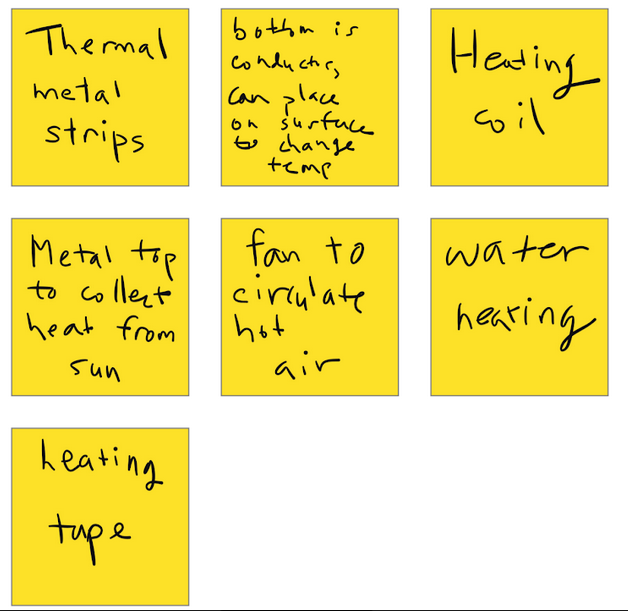 Thermal
metal
strips
bottom is
conductor,
can place
on surface
to change
temp
Heating
coil
Metal top
to collect
heat from
sun
fan to
circulate
hot
air
water
heating
heating
tape